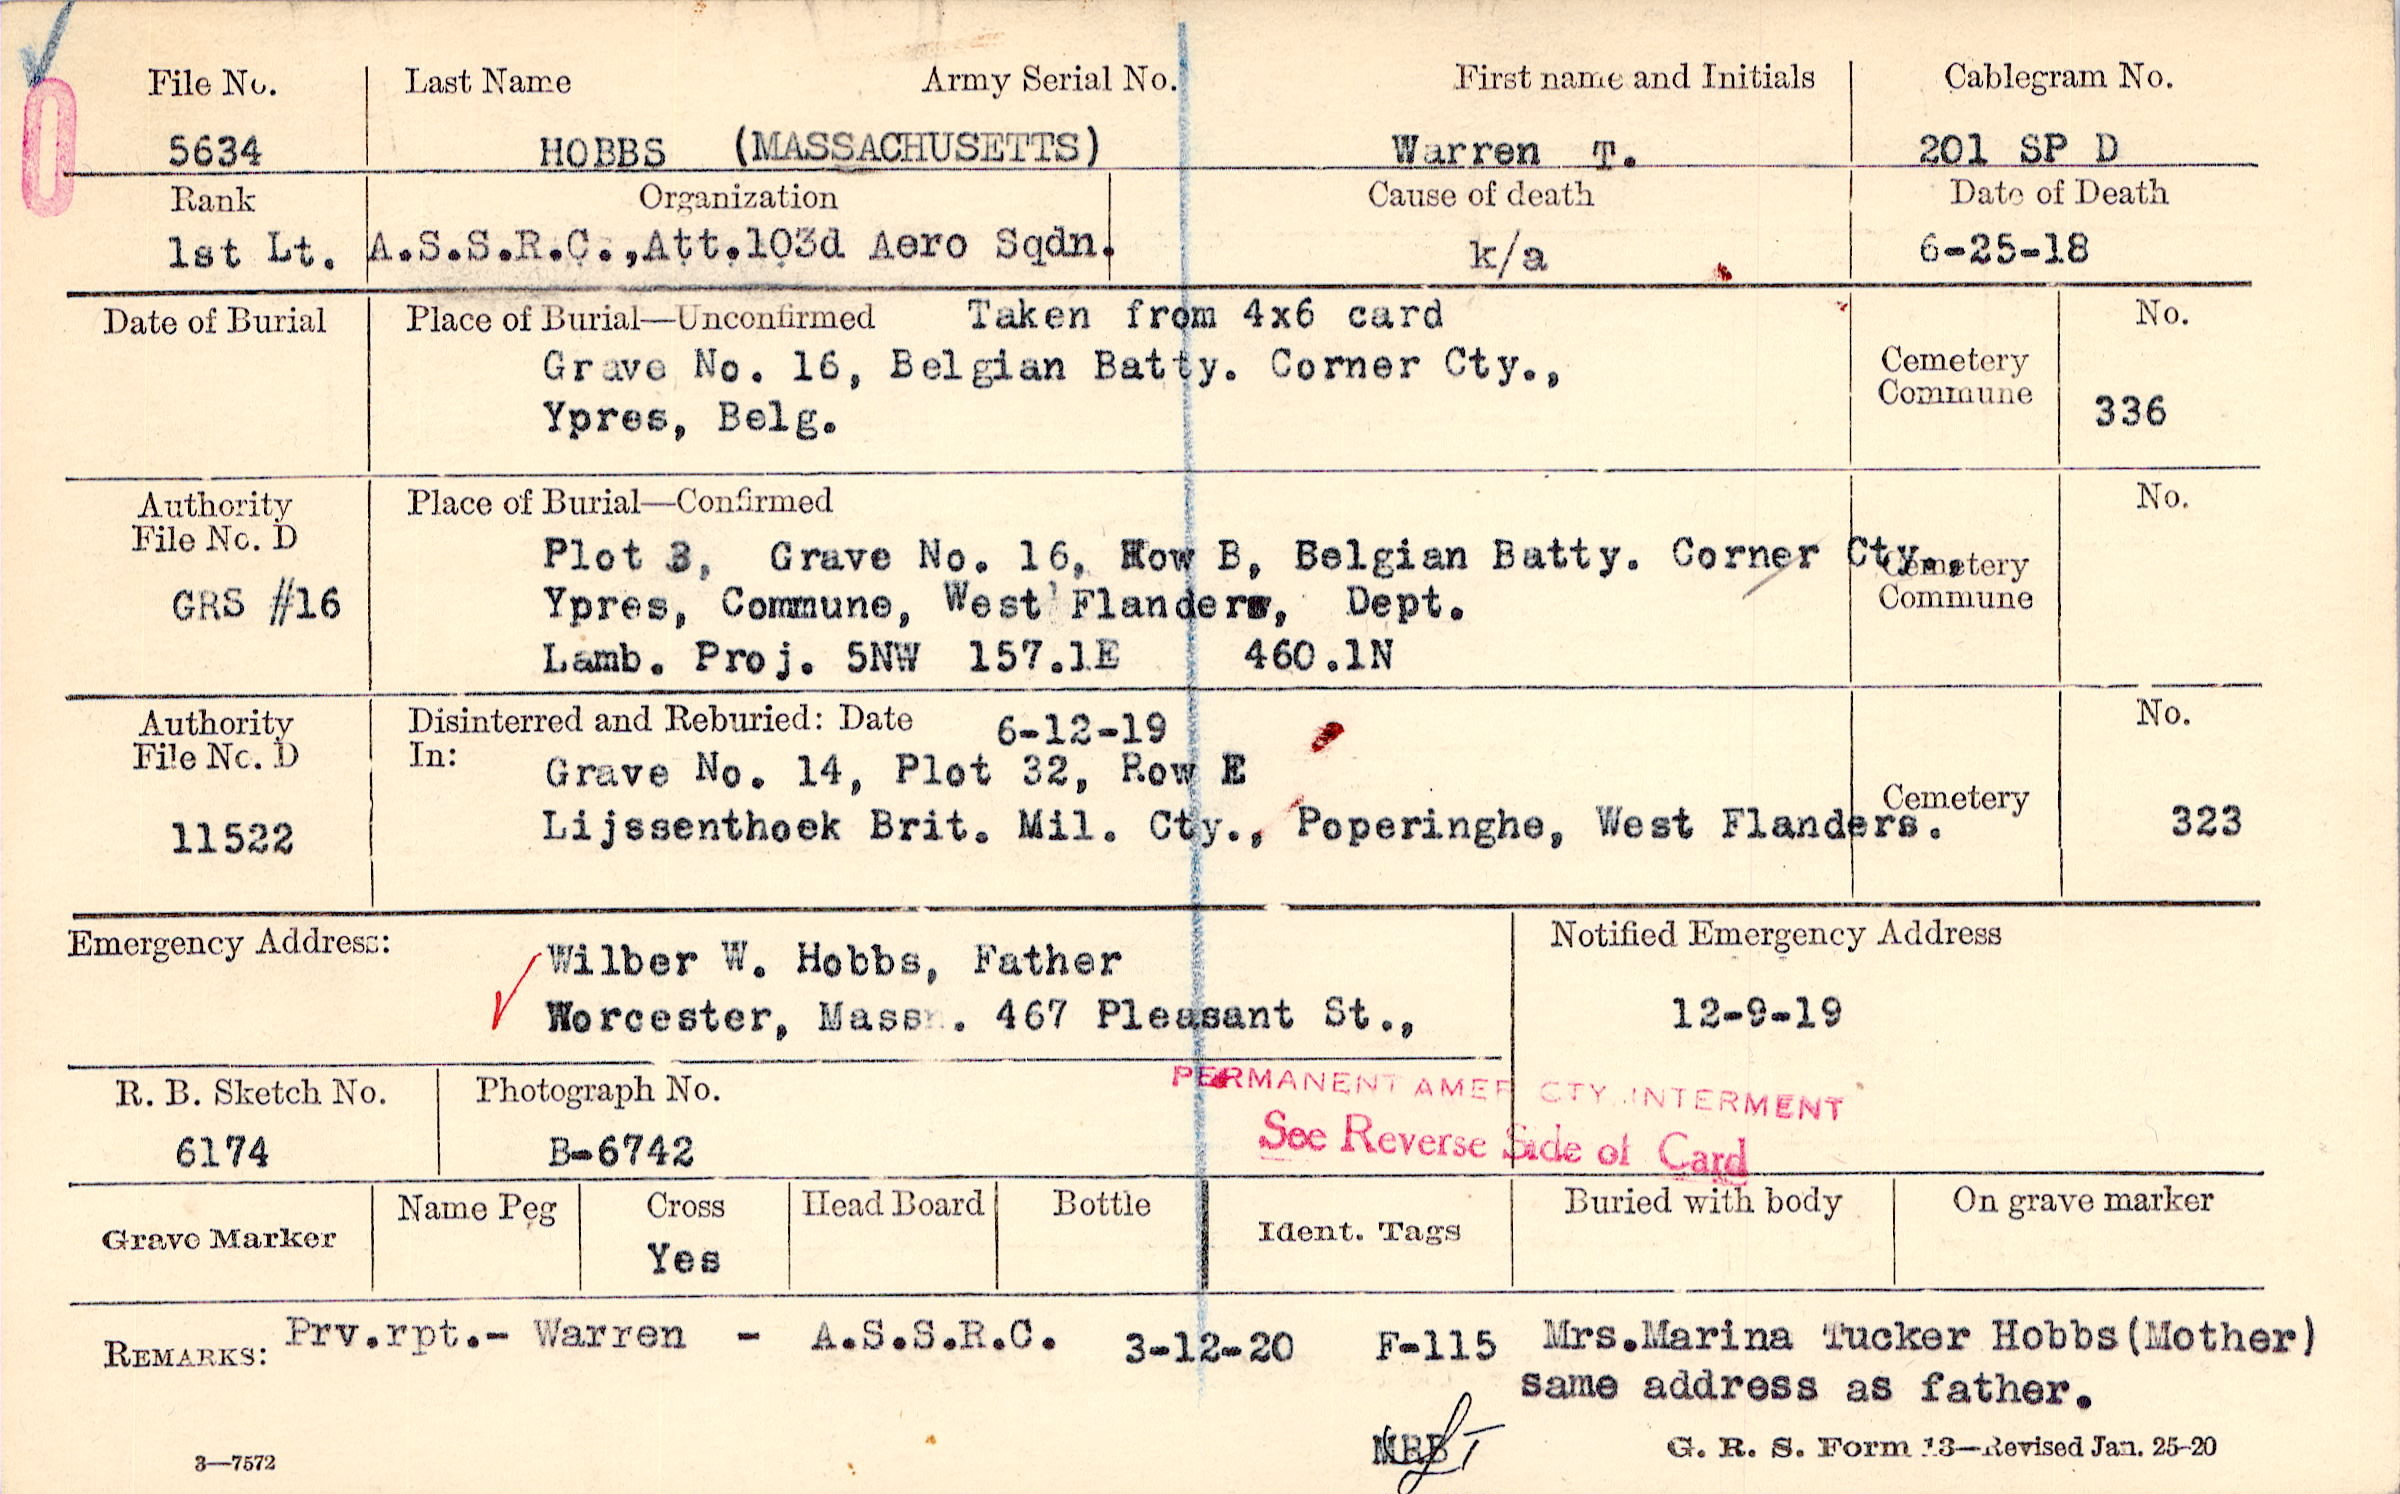 File No. Last Name Army Serial No. First name and Initials Cablegram No.
5634 HOBBS (MASSACHUSETTS) Warren T. 201 SP D
Rank Organization Cause of death Date of Death
1st Lt. A.S.S.R.C.,Att.103d Aero Sqdn. k/a 6-25-18
Date of Burial Place of Burial—Unconfirmed Taken from 4x6 card No.
Grave No. 16, Belgian Batty. Corner Cty.,
Ypres, Belg.
Cemetery
Commune
336
Authority
File No. D
GRS #16
Place of Burial—Confirmed No.
Plot 3, Grave No. 16, Row B, Belgian Batty. Corner Cty.,
Ypres, Commune, West Flanders, Dept.
Lamb. Proj. 5NW 157.1E 460.1N
Cemetery
Commune
Authority
File No. D
11522
Disinterred and Reburied: Date 6-12-19 No.
In: Grave No. 14, Plot 32, Row E
Lijssenthoek Brit. Mil. Cty., Poperinghe, West Flanders.
Cemetery
323
Emergency Address:
Wilber W. Hobbs, Father
Worcester, Mass. 467 Pleasant St.,
Notified Emergency Address
12-9-19
R. B. Sketch No. Photograph No.
6174 B-6742
PERMANENT AMER CTY INTERMENT
See Reverse Side of Card
Grave Marker Name Peg Cross Head Board Bottle Ident. Tags Buried with body On grave marker
Yes
REMARKS: Prv.rpt.- Warren - A.S.S.R.C. 3-12-20 F-115 Mrs.Marina Tucker Hobbs(Mother)
same address as father.
3—7572
G. R. S. Form 13—Revised Jan. 25-20